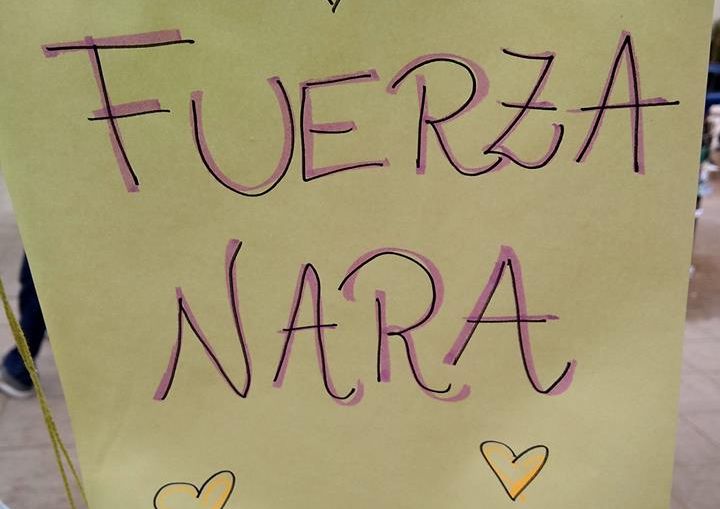 FUERZA
NARA